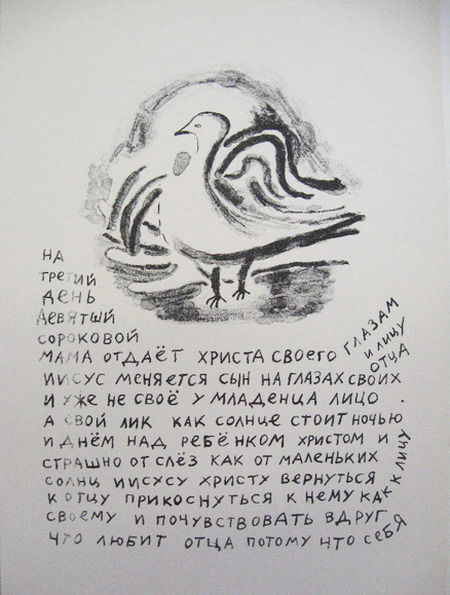 НА
ТРЕТИЙ
ДЕНЬ
ДЕВЯТЫЙ
СОРОКОВОЙ
МАМА ОТДАЁТ ХРИСТА СВОЕГО ГЛАЗАМ
И ЛИЦУ
ОТЦА
ИИСУС МЕНЯЕТСЯ СЫН НА ГЛАЗАХ СВОИХ
И УЖЕ НЕ СВОЁ У МЛАДЕНЦА ЛИЦО .
А СВОЙ ЛИК КАК СОЛНЦЕ СТОИТ НОЧЬЮ
И ДНЁМ НАД РЕБЁНКОМ ХРИСТОМ И
СТРАШНО ОТ СЛЁЗ КАК ОТ МАЛЕНЬКИХ
СОЛНЦ ИИСУСУ ХРИСТУ ВЕРНУТЬСЯ
К ОТЦУ ПРИКОСНУТЬСЯ К НЕМУ КАК К ЛИЦУ
СВОЕМУ И ПОЧУВСТВОВАТЬ ВДРУГ
ЧТО ЛЮБИТ ОТЦА ПОТОМУ ЧТО СЕБЯ